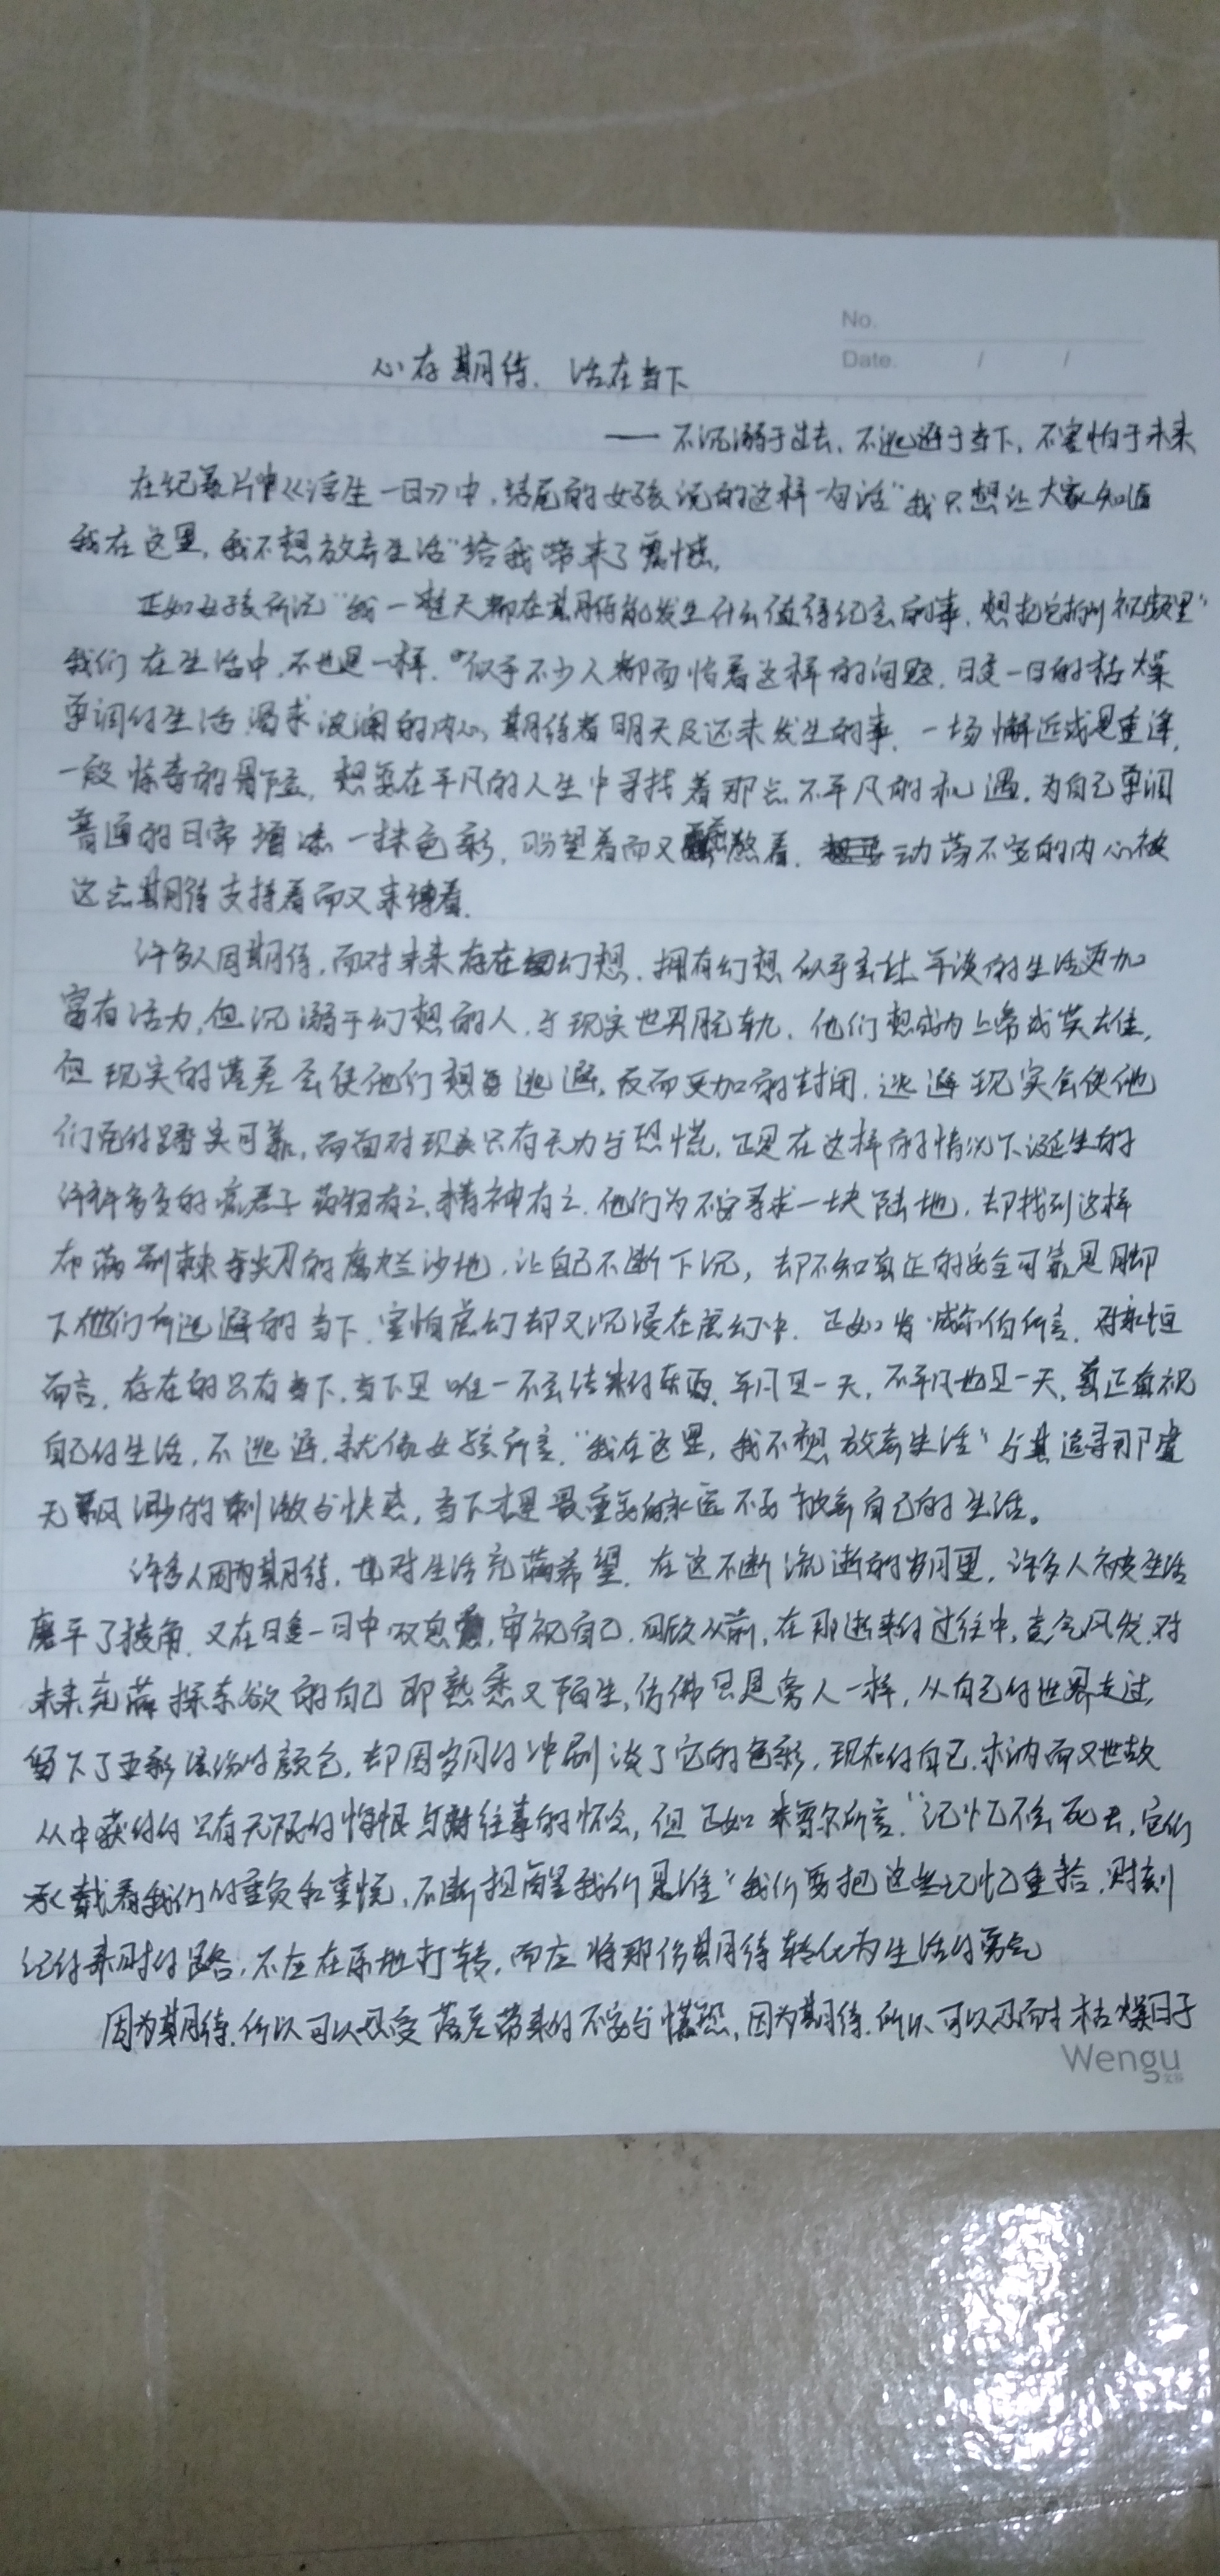 No.
Date. / /
心存期待、活在当下
——不沉溺于过去、不逃避于当下、不害怕于未来
在纪录片中《浮生一日》中,结尾的女孩说的这样一句话"我只想让大家知道
我在这里,我不想放弃生活"给我带来了震憾。
正如女孩所说"我一整天都在期待能发生什么值得纪念的事,想把它拍到视频里"
我们在生活中,不也是一样。似乎不少人都面临着这样的问题,日复一日的枯燥
单调的生活渴求波澜的内心,期待着明天及还未发生的事,一场邂逅或是重逢,
一段惊奇的冒险,想要在平凡的人生中寻找着那点不平凡的机遇,为自己单调
普通的日常增添一抹色彩,盼望着而又煎熬着,动荡不安的内心被
这点期待支持着而又束缚着。
许多人因期待,而对未来存在幻想,拥有幻想似乎会让平淡的生活更加
富有活力,但沉溺于幻想的人,与现实世界脱轨,他们想成为上帝或英雄,
但现实的落差会使他们想逃避,反而更加的封闭,逃避现实会使他
们觉得踏实可靠,而面对现实只有无力与恐慌,正是在这样的情况下诞生的
许许多多的瘾君子药物有之,精神有之,他们为不安寻求一块陆地,却找到这样
布满荆棘与尖刀的腐烂沙地,让自己不断下沉,却不知真正的安全可靠是脚
下他们所逃避的当下,害怕虚幻却又沉浸在虚幻中,正如肯·威尔伯所言,对永恒
而言,存在的只有当下,当下是唯一不会结束的东西,平凡是一天,不平凡也是一天,真正直视
自己的生活,不逃避,就像女孩所言,"我在这里,我不想放弃生活"与其追寻那虚
无飘渺的刺激与快感,当下才是最重要的永远不要放弃自己的生活。
许多人因为期待,也对生活充满希望,在这不断流逝的岁月里,许多人被生活
磨平了棱角,又在日复一日中叹息,审视自己,回顾从前,在那逝去的过往中,意气风发,对
未来充满探索欲的自己即熟悉又陌生,仿佛只是旁人一样,从自己的世界走过,
留下了五彩缤纷的颜色,却因岁月的冲刷淡了它的色彩,现在的自己,木讷而又世故
从中获得的只有无限的悔恨与对往事的怀念,但正如米尊尔所言,"记忆不会死去,它们
承载着我们的重负和喜悦,不断提醒我们是谁"我们要把这些记忆重拾,时刻
记得来时的路,不应在原地打转,而应将那份期待转化为生活的勇气
因为期待,所以可以忍受落差带来的不安与慌恐,因为期待,所以可以忍耐枯燥日子
Wengu